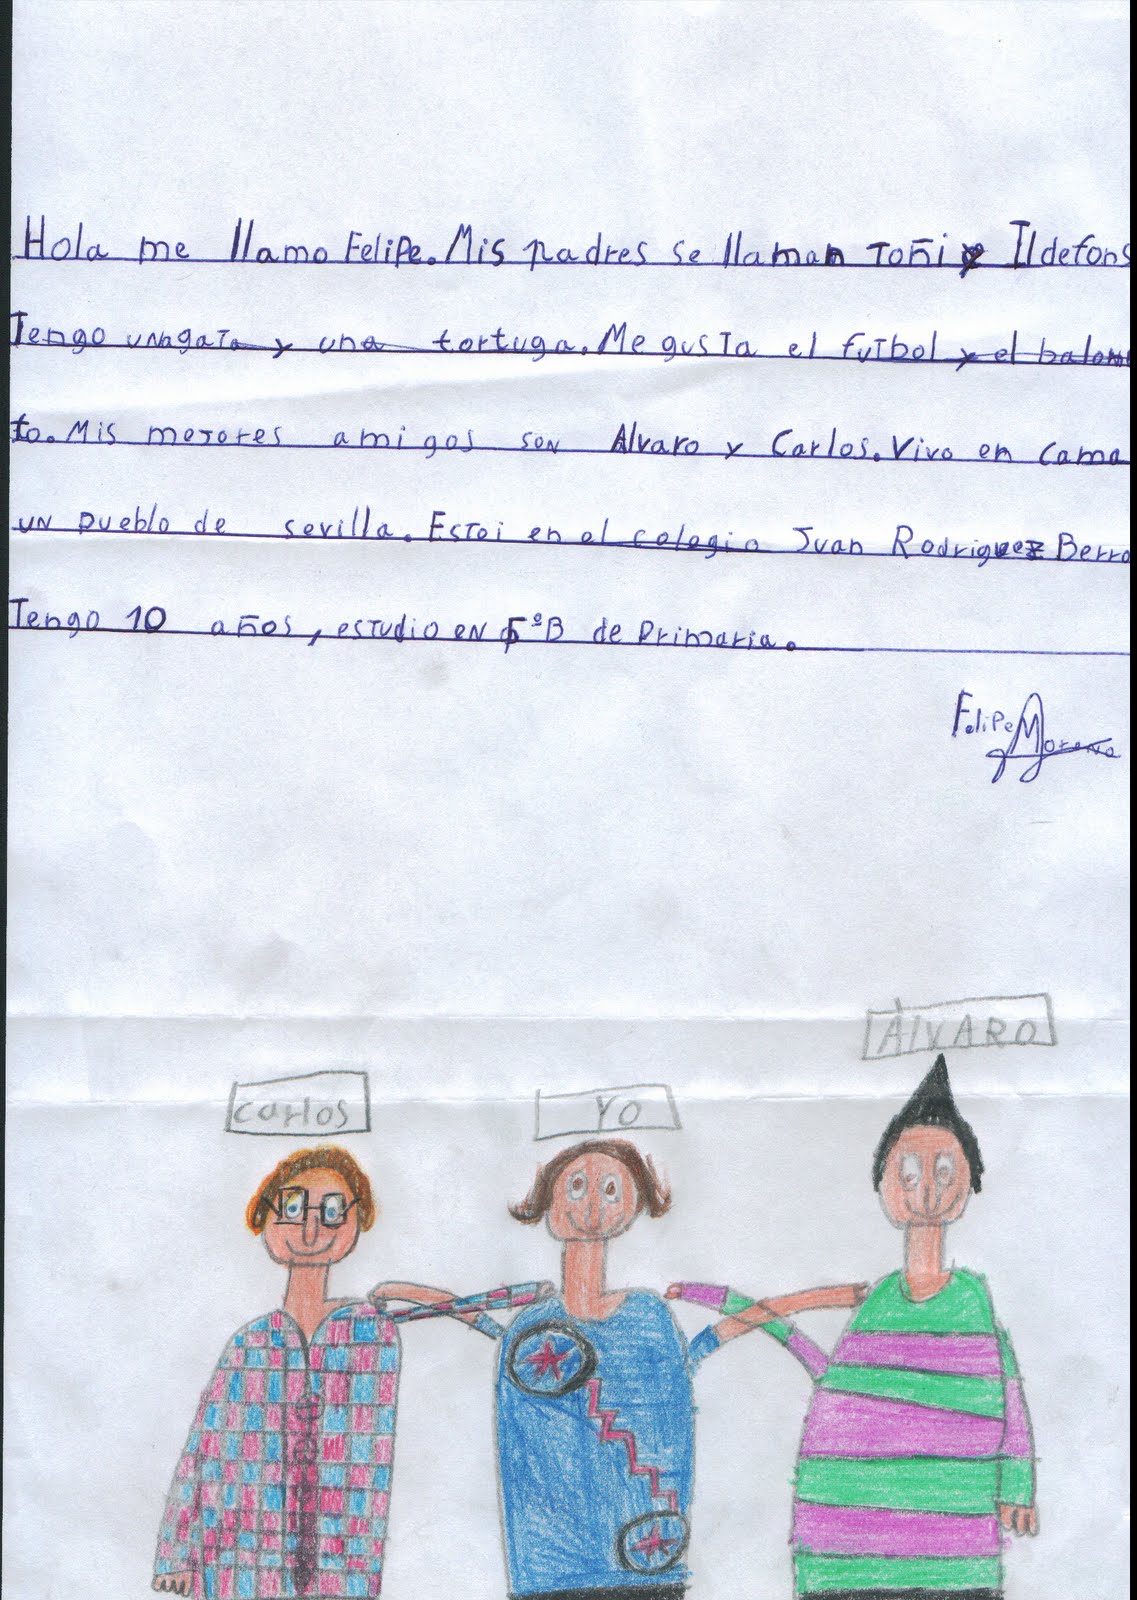 Hola me llamo Felipe. Mis padres se llaman Toñi y Ildefons
Tengo una gata y una tortuga. Me gusta el futbol y el balonm
to. Mis mejores amigos son Alvaro y Carlos. Vivo en Cama
un pueblo de sevilla. Estoi en el colegio Juan Rodriguez Berro
Tengo 10 años, estudio en 5ºB de Primaria.
Felipe Moreno
ÁlVARO
carlos
YO